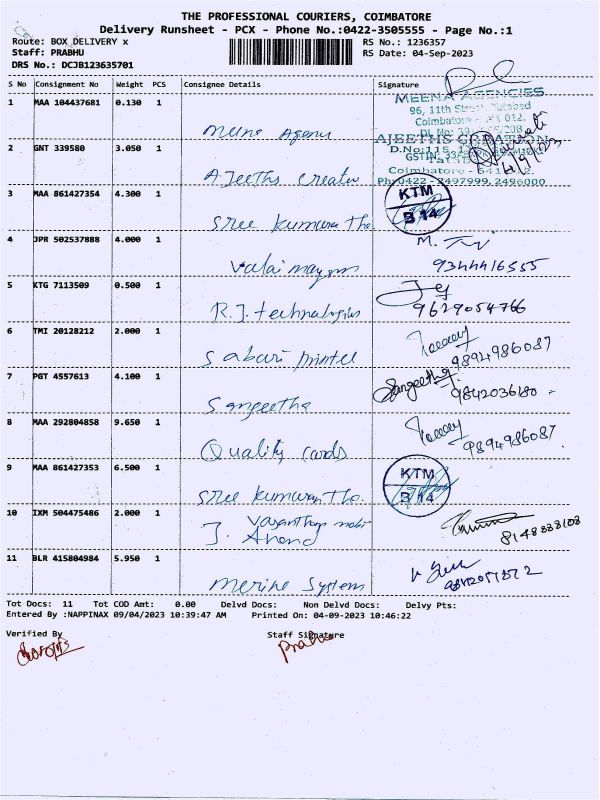 THE PROFESSIONAL COURIERS, COIMBATORE
Delivery Runsheet - PCX - Phone No.:0422-3505555 - Page No.:1
Route: BOX DELIVERY x
RS No.: 1236357
Staff: PRABHU
RS Date: 04-Sep-2023
DRS No.: DCJB123635701
S No Consignment No Weight PCS Consignee Details Signature
1 MAA 104437681 0.130 1
MEENA AGENCIES
96, 11th Street
Coimbatore 012.
2 GNT 339580 3.050 1 AJeeths Creator
AJEETHS CREATION
D.No:115
GSTIN: 33
Coimbatore - 641 012.
Ph:0422 - 2497999, 2496000
4/9/23
3 MAA 861427354 4.300 1 Sree kumaran Tho
KTM
B 14
4 JPR 502537888 4.000 1
9344416555
5 KTG 7113509 0.500 1 R.J. technologies
9629054766
6 TMI 20128212 2.000 1 Sabari
9894986087
7 PGT 4557613 4.100 1 Sangeetha
Sangeetha
9842036180
8 MAA 292804858 9.650 1 Quality cards
9894986087
9 MAA 861427353 6.500 1 Sree kumaran Tho.
KTM
B 14
10 IXM 504475486 2.000 1 Vasantham mobi
J. Anand
11 BLR 415804984 5.950 1 merine Systems
Tot Docs: 11 Tot COD Amt: 0.00 Delvd Docs: Non Delvd Docs: Delvy Pts:
Entered By :NAPPINAX 09/04/2023 10:39:47 AM Printed On :04-09-2023 10:46:22
Verified By Staff Signature
Prabhu